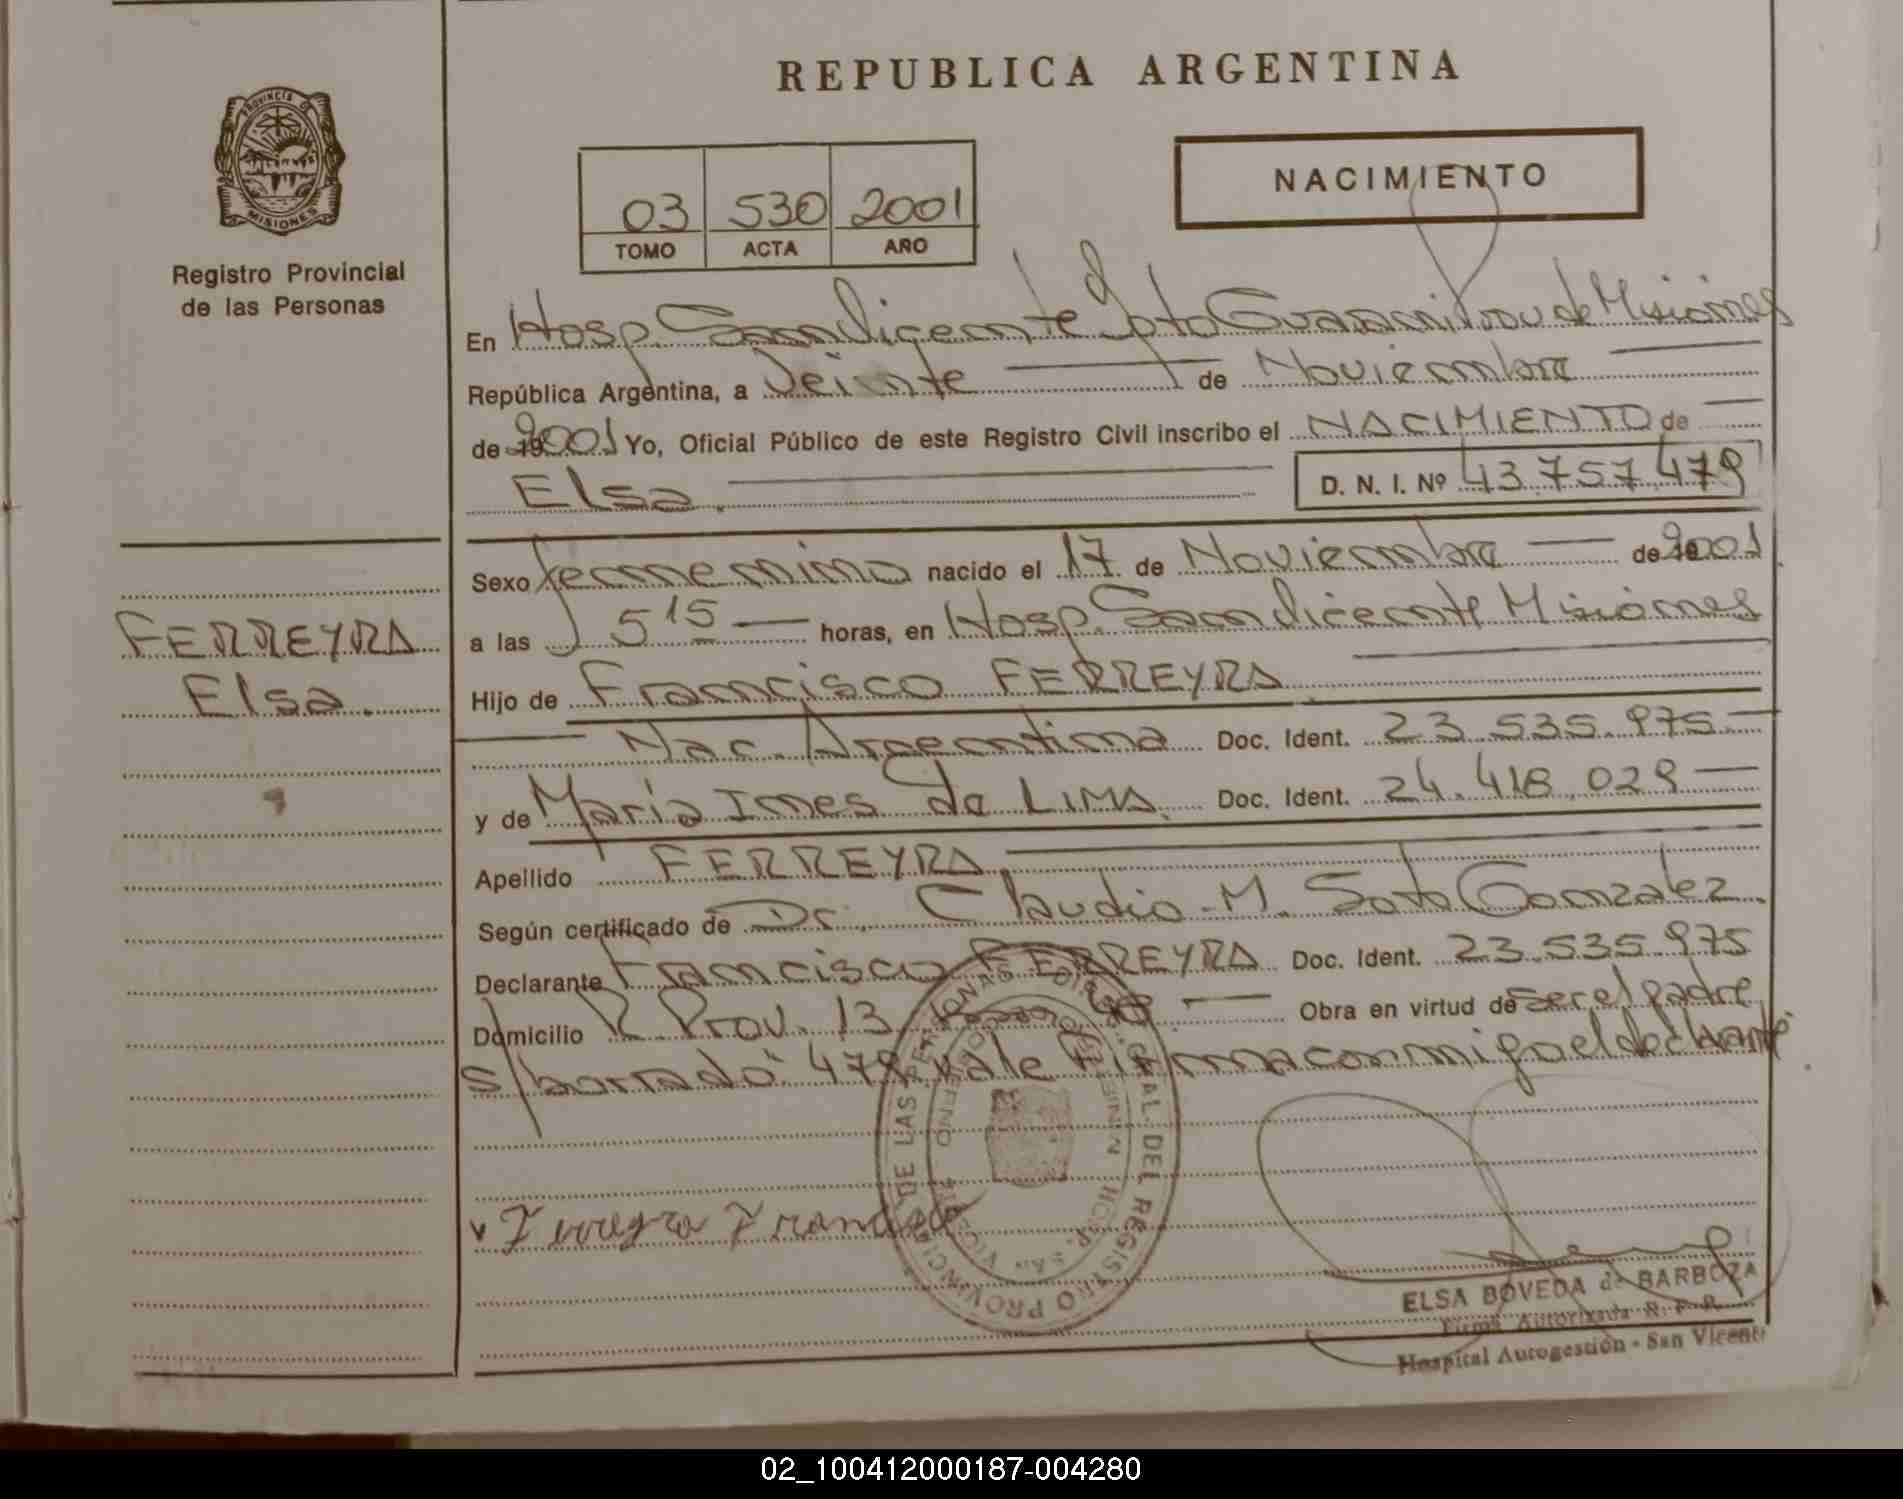 REPUBLICA ARGENTINA
PROVINCIA DE
MISIONES
Registro Provincial
de las Personas
NACIMIENTO
03 530 2001
TOMO ACTA AÑO
En Hosp. San Vicente Dpto Guarani Prov de Misiones
República Argentina, a Veinte de Noviembre
de 2001 Yo, Oficial Público de este Registro Civil inscribo el NACIMIENTO de
Elsa. D. N. I. Nº 43.757.479
Sexo femenino nacido el 17 de Noviembre de 2001
a las 5 15 horas, en Hosp. San Vicente Misiones
Hijo de Francisco FERREYRA
Nac. Argentina Doc. Ident. 23.535.975
y de María Ines de LIMA. Doc. Ident. 24.418.029
Apellido FERREYRA
Según certificado de Dr. Claudio M. Soto Gonzalez.
Declarante Francisco FERREYRA Doc. Ident. 23.535.975
Domicilio R Prov. 13 Obra en virtud de ser el padre
s/borrado "479" vale Firma conmigo el declarante
FERREYRA
Elsa.
Ferreyra Francisco
PROVINCIAL DEL REGISTRO PROVINCIAL DE LAS PERSONAS
ELSA BOVEDA de BARBOZA
Firma Autorizada R. P. P.
Hospital Autogestión - San Vicente
02_100412000187-004280